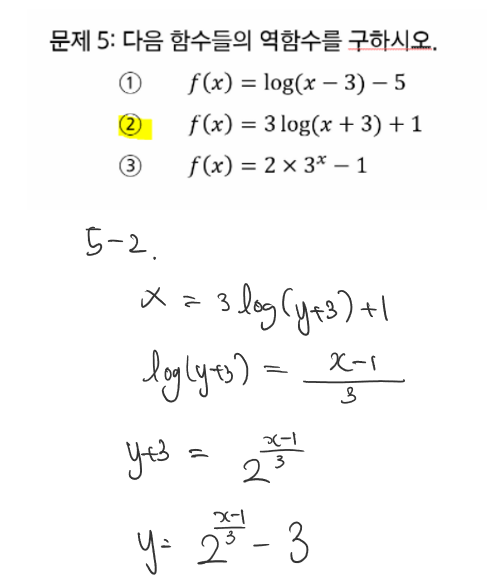 문제 5: 다음 함수들의 역함수를 구하시오.
① f(x) = log(x − 3) − 5
② f(x) = 3 log(x + 3) + 1
③ f(x) = 2 × 3^x − 1
5-2.
x = 3 log(y+3) + 1
log(y+3) = (x-1)/3
y+3 = 2^((x-1)/3)
y = 2^((x-1)/3) - 3